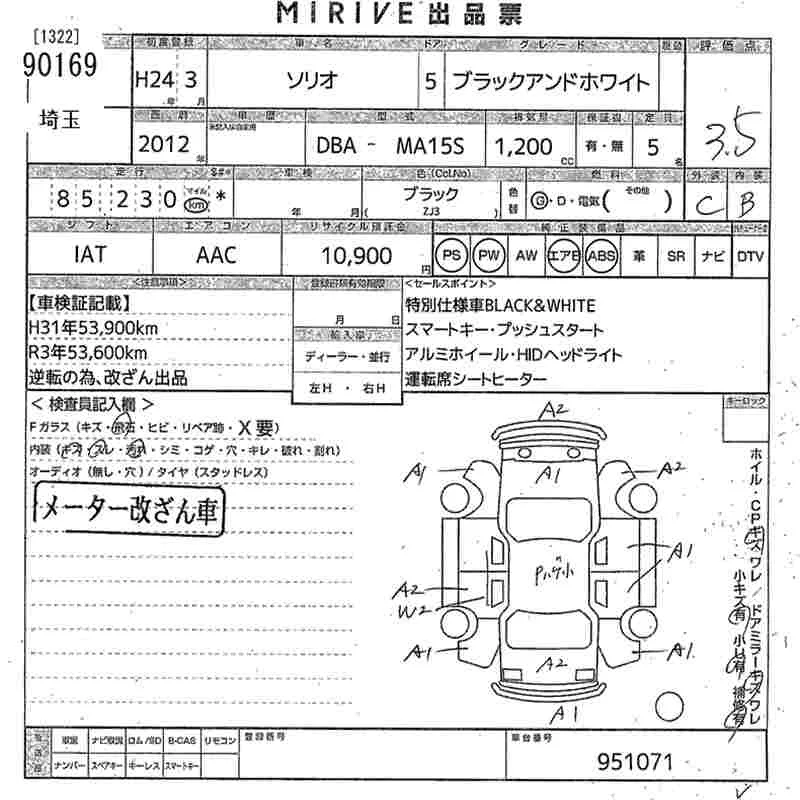 MIRIVE出品票
[1322]
90169
埼玉
初度登録 車名 ドア グレード 評価点
H24 3 ソリオ 5 ブラックアンドホワイト
年 月
3.5
西暦 車歴 型式 排気量 保証書 定員
2012 年 DBA - MA15S 1,200 cc 有・無 5 名
走行 車検 色(Col.No) 燃料 外装 内装
85,230 マイル km * 年 月 ブラック ( ZJ3 ) 色替 G・D・電気( その他 ) C B
シフト エアコン リサイクル預託金 純正装備品
IAT AAC 10,900 円 PS PW AW エアB ABS 革 SR ナビ DTV
<注意事項> 登録書類有効期限 <セールスポイント>
【車検証記載】 月 日 特別仕様車BLACK&WHITE
H31年53,900km 輸入車 スマートキー・プッシュスタート
R3年53,600km ディーラー・並行 アルミホイール・HIDヘッドライト
逆転の為、改ざん出品 左H ・ 右H 運転席シートヒーター
< 検査員記入欄 > キーロック
Fガラス (キズ・飛石・ヒビ・リペア跡・X要)
内装 (キズ・スレ・汚れ・シミ・コゲ・穴・キレ・破れ・割れ)
オーディオ (無し・穴) / タイヤ (スタッドレス)
メーター改ざん車
A2
A1 A1 A2
A1
A2
W2
A1 A2 A1
A1
ホイル・CPキズワレ/ドアミラーキズワレ
小キズ有 小凹有 補修有
取説 ナビ取説 ロム/SD B-CAS リモコン 登録番号 車台番号
ナンバー スペアキー キーレス スマートキー 951071